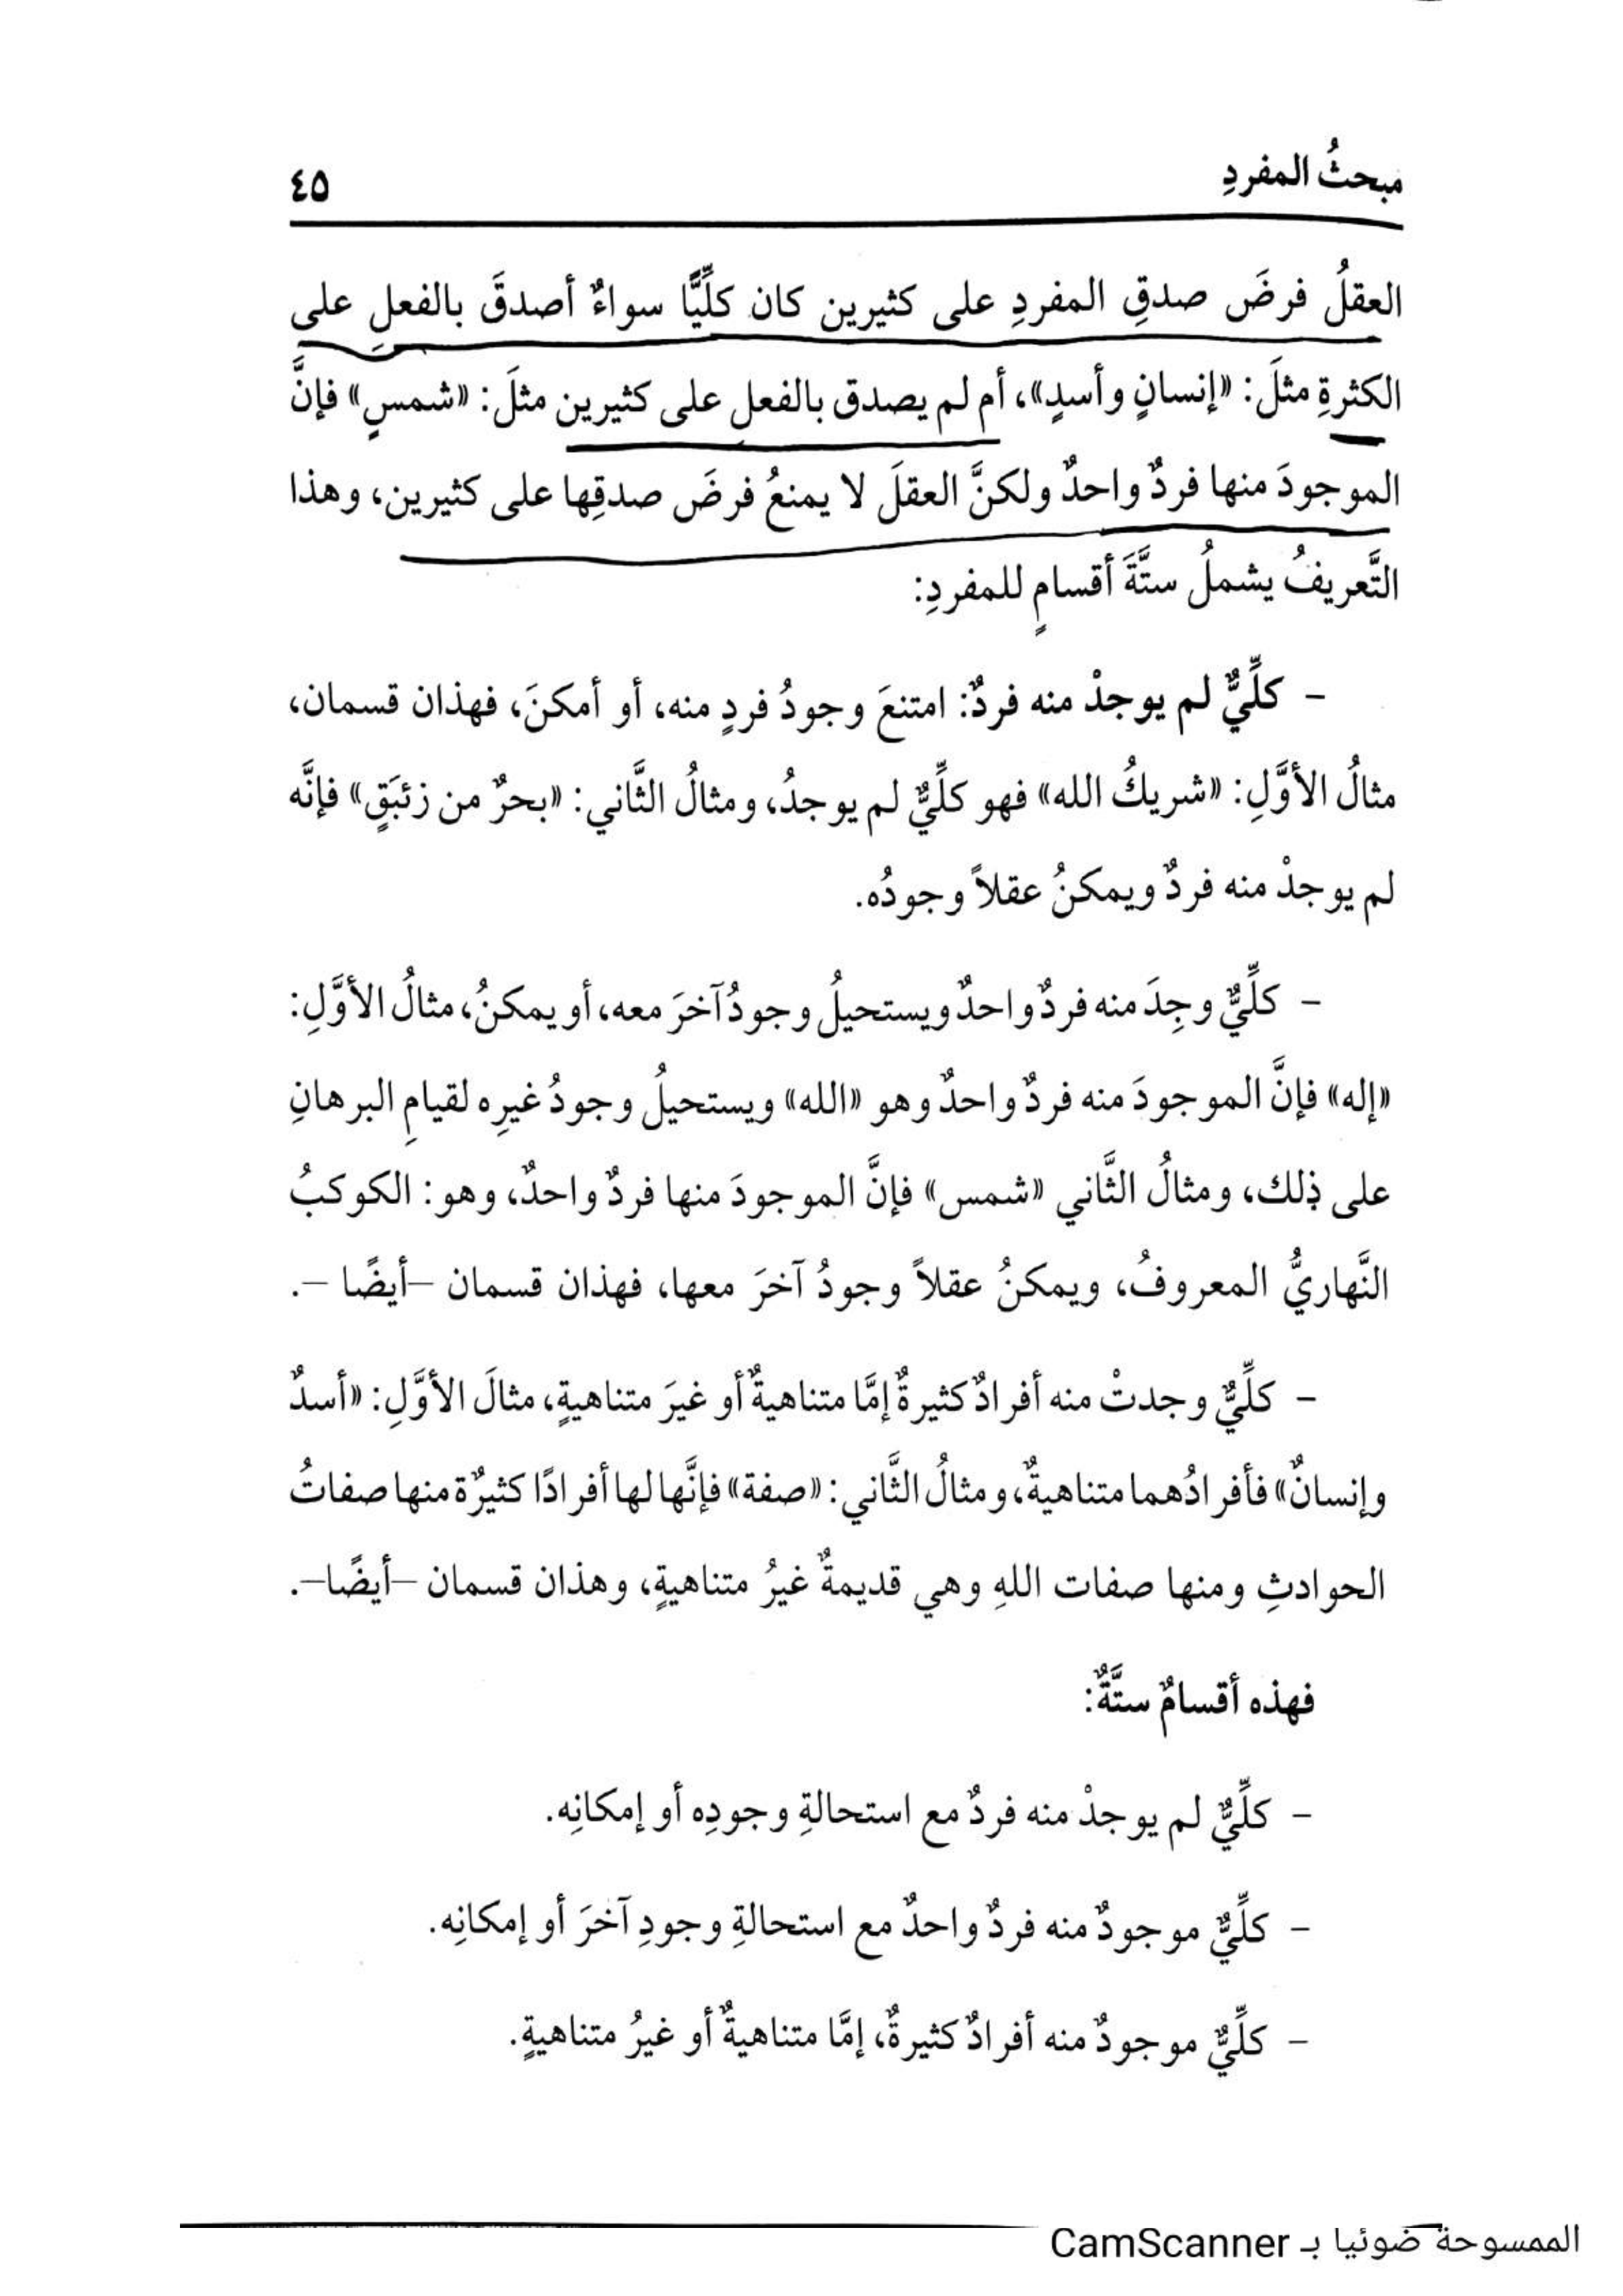 مبحثُ المفردِ ٤٥
العقلُ فرضَ صدقِ المفردِ على كثيرين كان كلِّيًّا سواءٌ أصدقَ بالفعلِ على
الكثرةِ مثلَ: «إنسانٍ وأسدٍ»، أم لم يصدق بالفعل على كثيرين مثلَ: «شمسٍ» فإنَّ
الموجودَ منها فردٌ واحدٌ ولكنَّ العقلَ لا يمنعُ فرضَ صدقِها على كثيرين، وهذا
التَّعريفُ يشملُ ستَّةَ أقسامٍ للمفردِ:
– كلِّيٌّ لم يوجدْ منه فردٌ: امتنعَ وجودُ فردٍ منه، أو أمكنَ، فهذان قسمان،
مثالُ الأوَّلِ: «شريكُ الله» فهو كلِّيٌّ لم يوجدُ، ومثالُ الثَّاني: «بحرٌ من زئبَقٍ» فإنَّه
لم يوجدْ منه فردٌ ويمكنُ عقلاً وجودُه.
– كلِّيٌّ وجِدَ منه فردٌ واحدٌ ويستحيلُ وجودُ آخرَ معه، أو يمكنُ، مثالُ الأوَّلِ:
«إله» فإنَّ الموجودَ منه فردٌ واحدٌ وهو «الله» ويستحيلُ وجودُ غيرِه لقيامِ البرهانِ
على ذلك، ومثالُ الثَّاني «شمس» فإنَّ الموجودَ منها فردٌ واحدٌ، وهو: الكوكبُ
النَّهاريُّ المعروفُ، ويمكنُ عقلاً وجودُ آخرَ معها، فهذان قسمان –أيضًا –.
– كلِّيٌّ وجدتْ منه أفرادٌ كثيرةٌ إمَّا متناهيةٌ أو غيرَ متناهيةٍ، مثالَ الأوَّلِ: «أسدٌ
وإنسانٌ» فأفرادُهما متناهيةٌ، ومثالُ الثَّاني: «صفة» فإنَّها لها أفرادًا كثيرٌة منها صفاتُ
الحوادثِ ومنها صفات اللهِ وهي قديمةٌ غيرُ متناهيةٍ، وهذان قسمان –أيضًا–.
فهذه أقسامٌ ستَّةٌ:
– كلِّيٌّ لم يوجدْ منه فردٌ مع استحالةِ وجودِه أو إمكانِه.
– كلِّيٌّ موجودٌ منه فردٌ واحدٌ مع استحالةِ وجودِ آخرَ أو إمكانِه.
– كلِّيٌّ موجودٌ منه أفرادٌ كثيرةٌ، إمَّا متناهيةٌ أو غيرُ متناهيةٍ.
الممسوحة ضوئيا بـ CamScanner